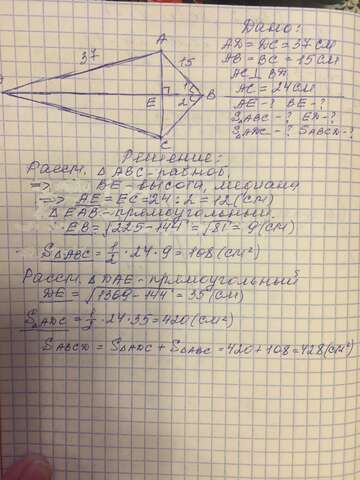 Дано:
AD = DC = 37 см
AB = BC = 15 см
AC ⊥ BD
AC = 24 см
AE - ? BE - ?
S△ABC - ? ED - ?
S△ADC - ? SABCD - ?
A
37
15
D
E
1
2
B
C
Решение:
Рассм. △ABC - равноб.
=> BE - высота, медиана
=> AE = EC = 24 : 2 = 12 (см)
△EAB - прямоугольный.
EB = √225 - 144 = √81 = 9 (см)
S△ABC = 1/2 · 24 · 9 = 108 (см²)
Рассм. △DAE - прямоугольный
DE = √1369 - 144 = 35 (см)
S△ADC = 1/2 · 24 · 35 = 420 (см²)
SABCD = S△ADC + S△ABC = 420 + 108 = 428 (см²)